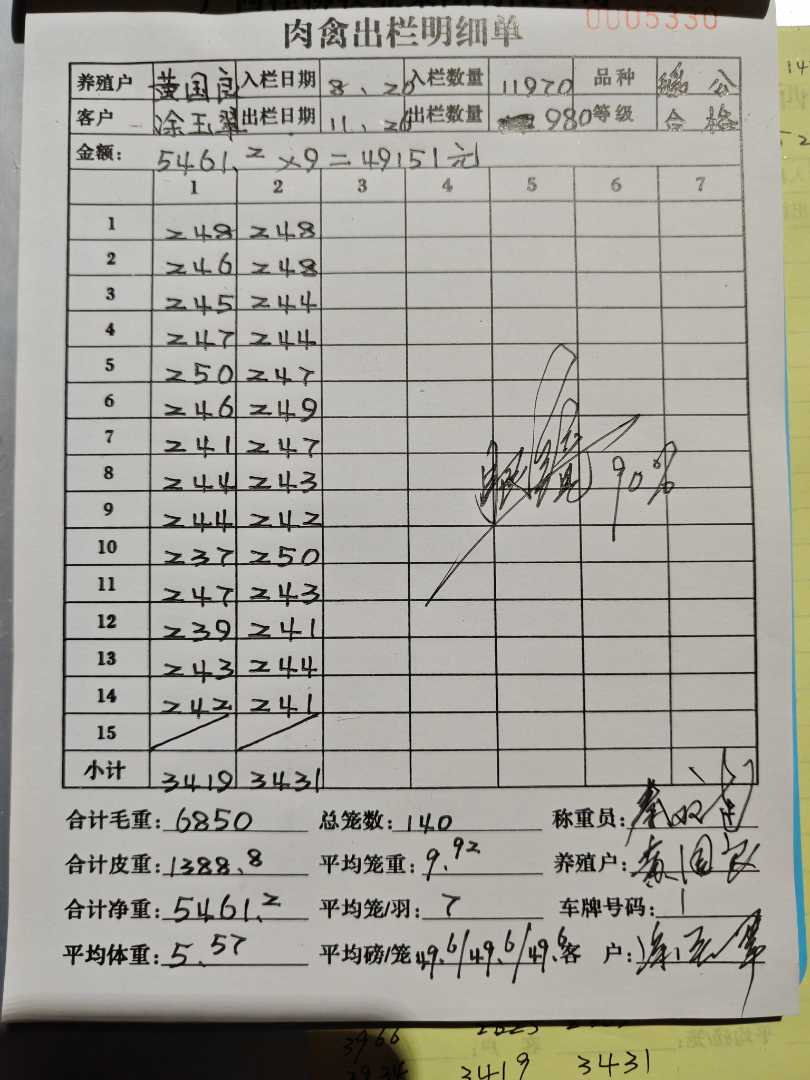 0005330
肉禽出栏明细单
养殖户 黄国良 入栏日期 8、20 入栏数量 11970 品种 瑶公
客户 涂玉翠 出栏日期 11、20 出栏数量 980 等级 合格
金额: 5461.2×9=49151元
1 2 3 4 5 6 7
1 248 248
2 246 248
3 245 244
4 247 244
5 250 247
6 246 249
7 241 247
8 244 243
90%
9 244 242
10 237 250
11 247 243
12 239 241
13 243 244
14 242 241
15
小计 3419 3431
合计毛重: 6850 总笼数: 140 称重员:
合计皮重: 1388.8 平均笼重: 9.92 养殖户: 黄国良
合计净重: 5461.2 平均笼/羽: 7 车牌号码: 1
平均体重: 5.57 平均磅/笼 49.6/49.6/49.6 客户: 涂玉翠
3966
2934 3419 3431